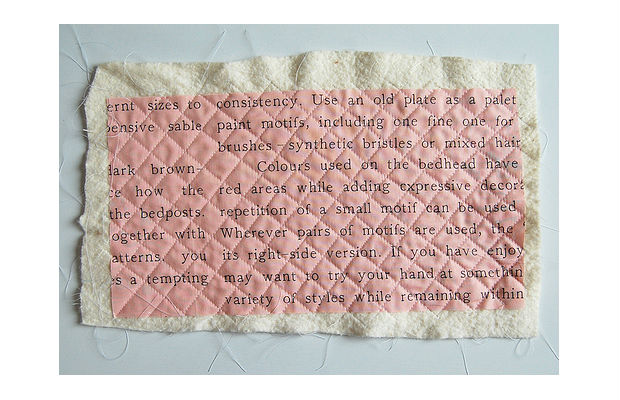 ernt sizes to
pensive sable
dark brown–
ce how the
the bedposts.
ogether with
atterns, you
s a tempting
consistency. Use an old plate as a palet
paint motifs, including one fine one for
brushes – synthetic bristles or mixed hair
Colours used on the bedhead have
red areas while adding expressive decora
repetition of a small motif can be used
Wherever pairs of motifs are used, the
its right-side version. If you have enjoy
may want to try your hand at somethin
variety of styles while remaining within